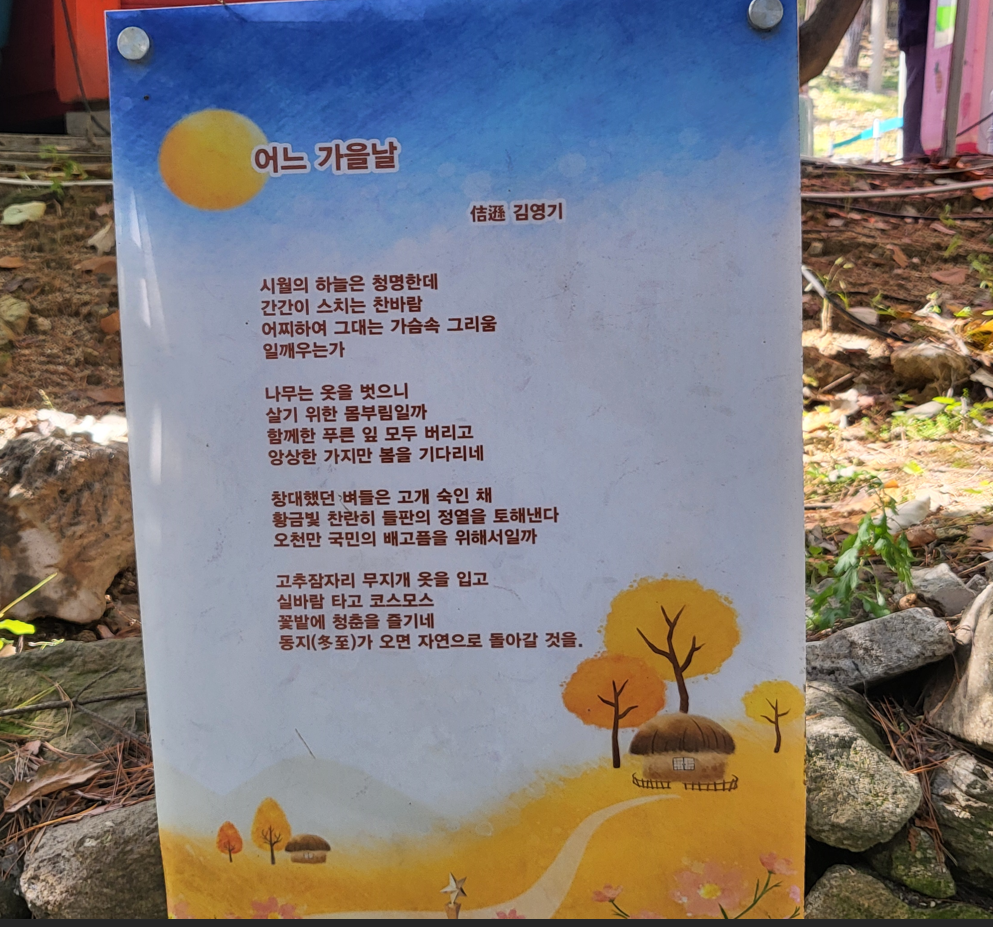 어느 가을날
佶遜 김영기
시월의 하늘은 청명한데
간간이 스치는 찬바람
어찌하여 그대는 가슴속 그리움
일깨우는가
나무는 옷을 벗으니
살기 위한 몸부림일까
함께한 푸른 잎 모두 버리고
앙상한 가지만 봄을 기다리네
창대했던 벼들은 고개 숙인 채
황금빛 찬란히 들판의 정열을 토해낸다
오천만 국민의 배고픔을 위해서일까
고추잠자리 무지개 옷을 입고
실바람 타고 코스모스
꽃밭에 청춘을 즐기네
동지(冬至)가 오면 자연으로 돌아갈 것을.